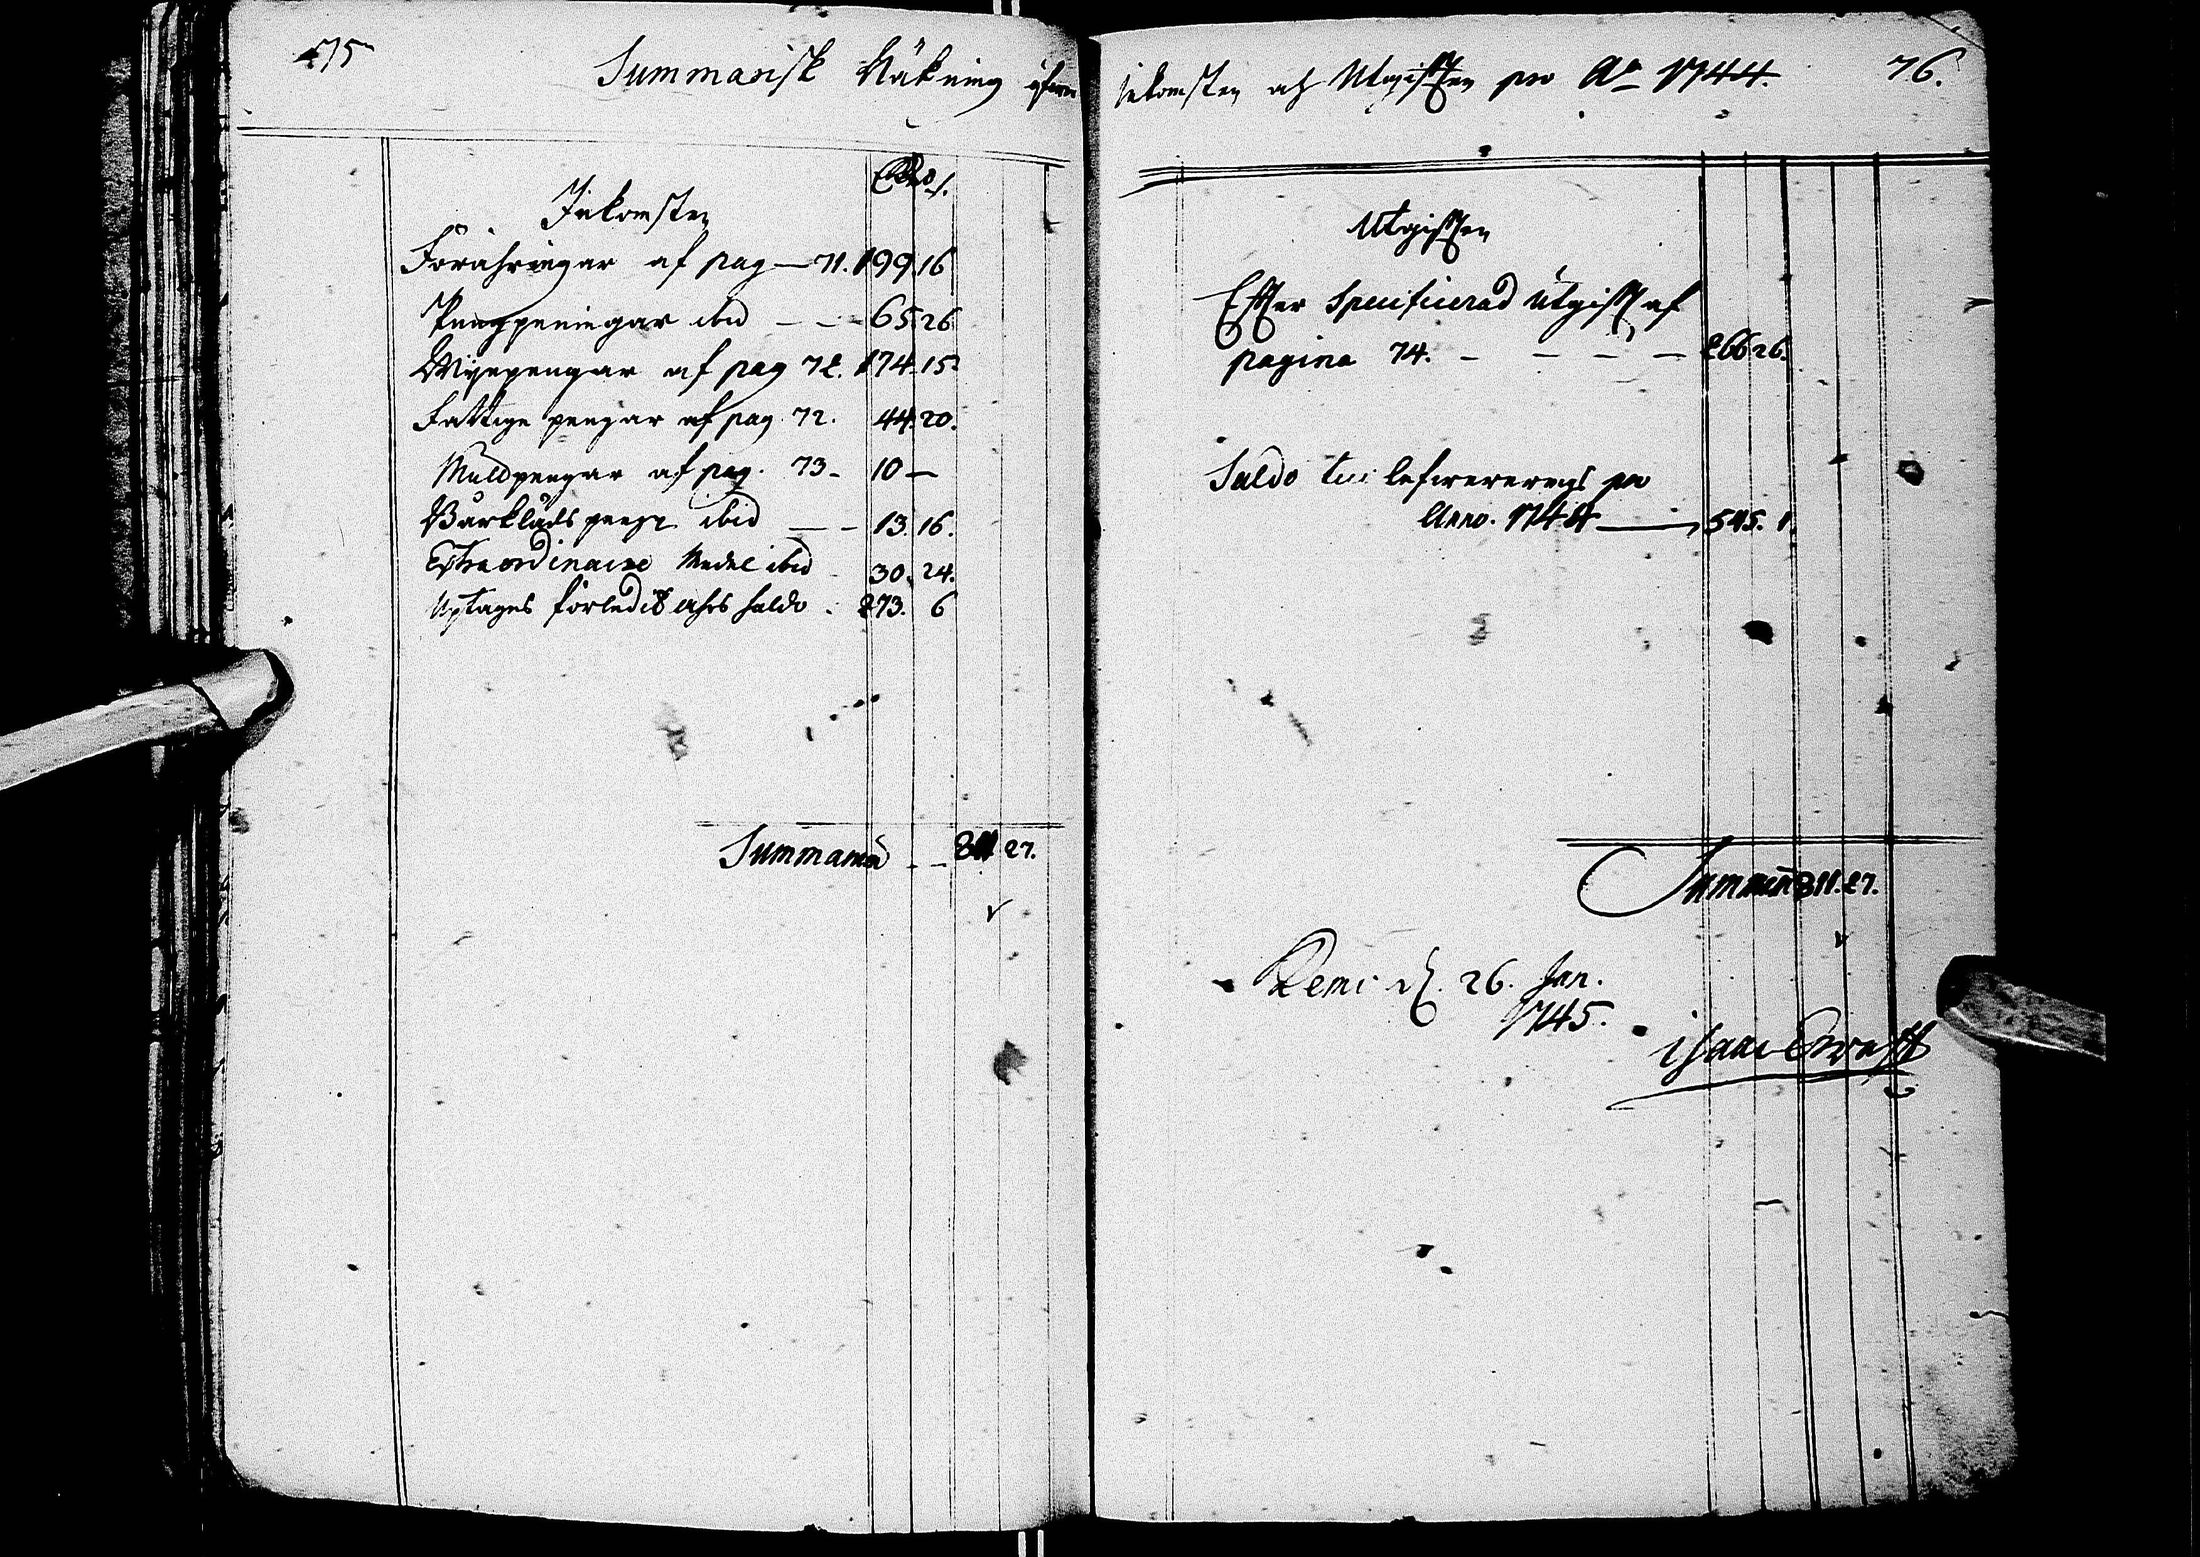 75
Summarisk Räkning öfwer
Inkomsten
Förähringar af pag — 71. 199 16
Pungpeningar ibid — — 65 26
Wijnpengar af pag 72. 174 15
Fattige pengar af pag. 72. 44. 20.
Muldpengar af pag. 73 - 10 —
Bårkläds peng: ibid — - 13. 16.
Extraordinaire Medel ibid 30. 24.
Uptages förledit åhrs saldo . 273. 6
Summa - - 811 27.
inkomsten och Utgifften pro Ao 1744. 76.
Utgifften
Effter Specificerad Utgifft af
pagina 74. - - - - 266 26.
Saldo till
Anno. 1744 — 545. 1.
Summa 811. 27.
Kemi d. 26. Jan.
1745.